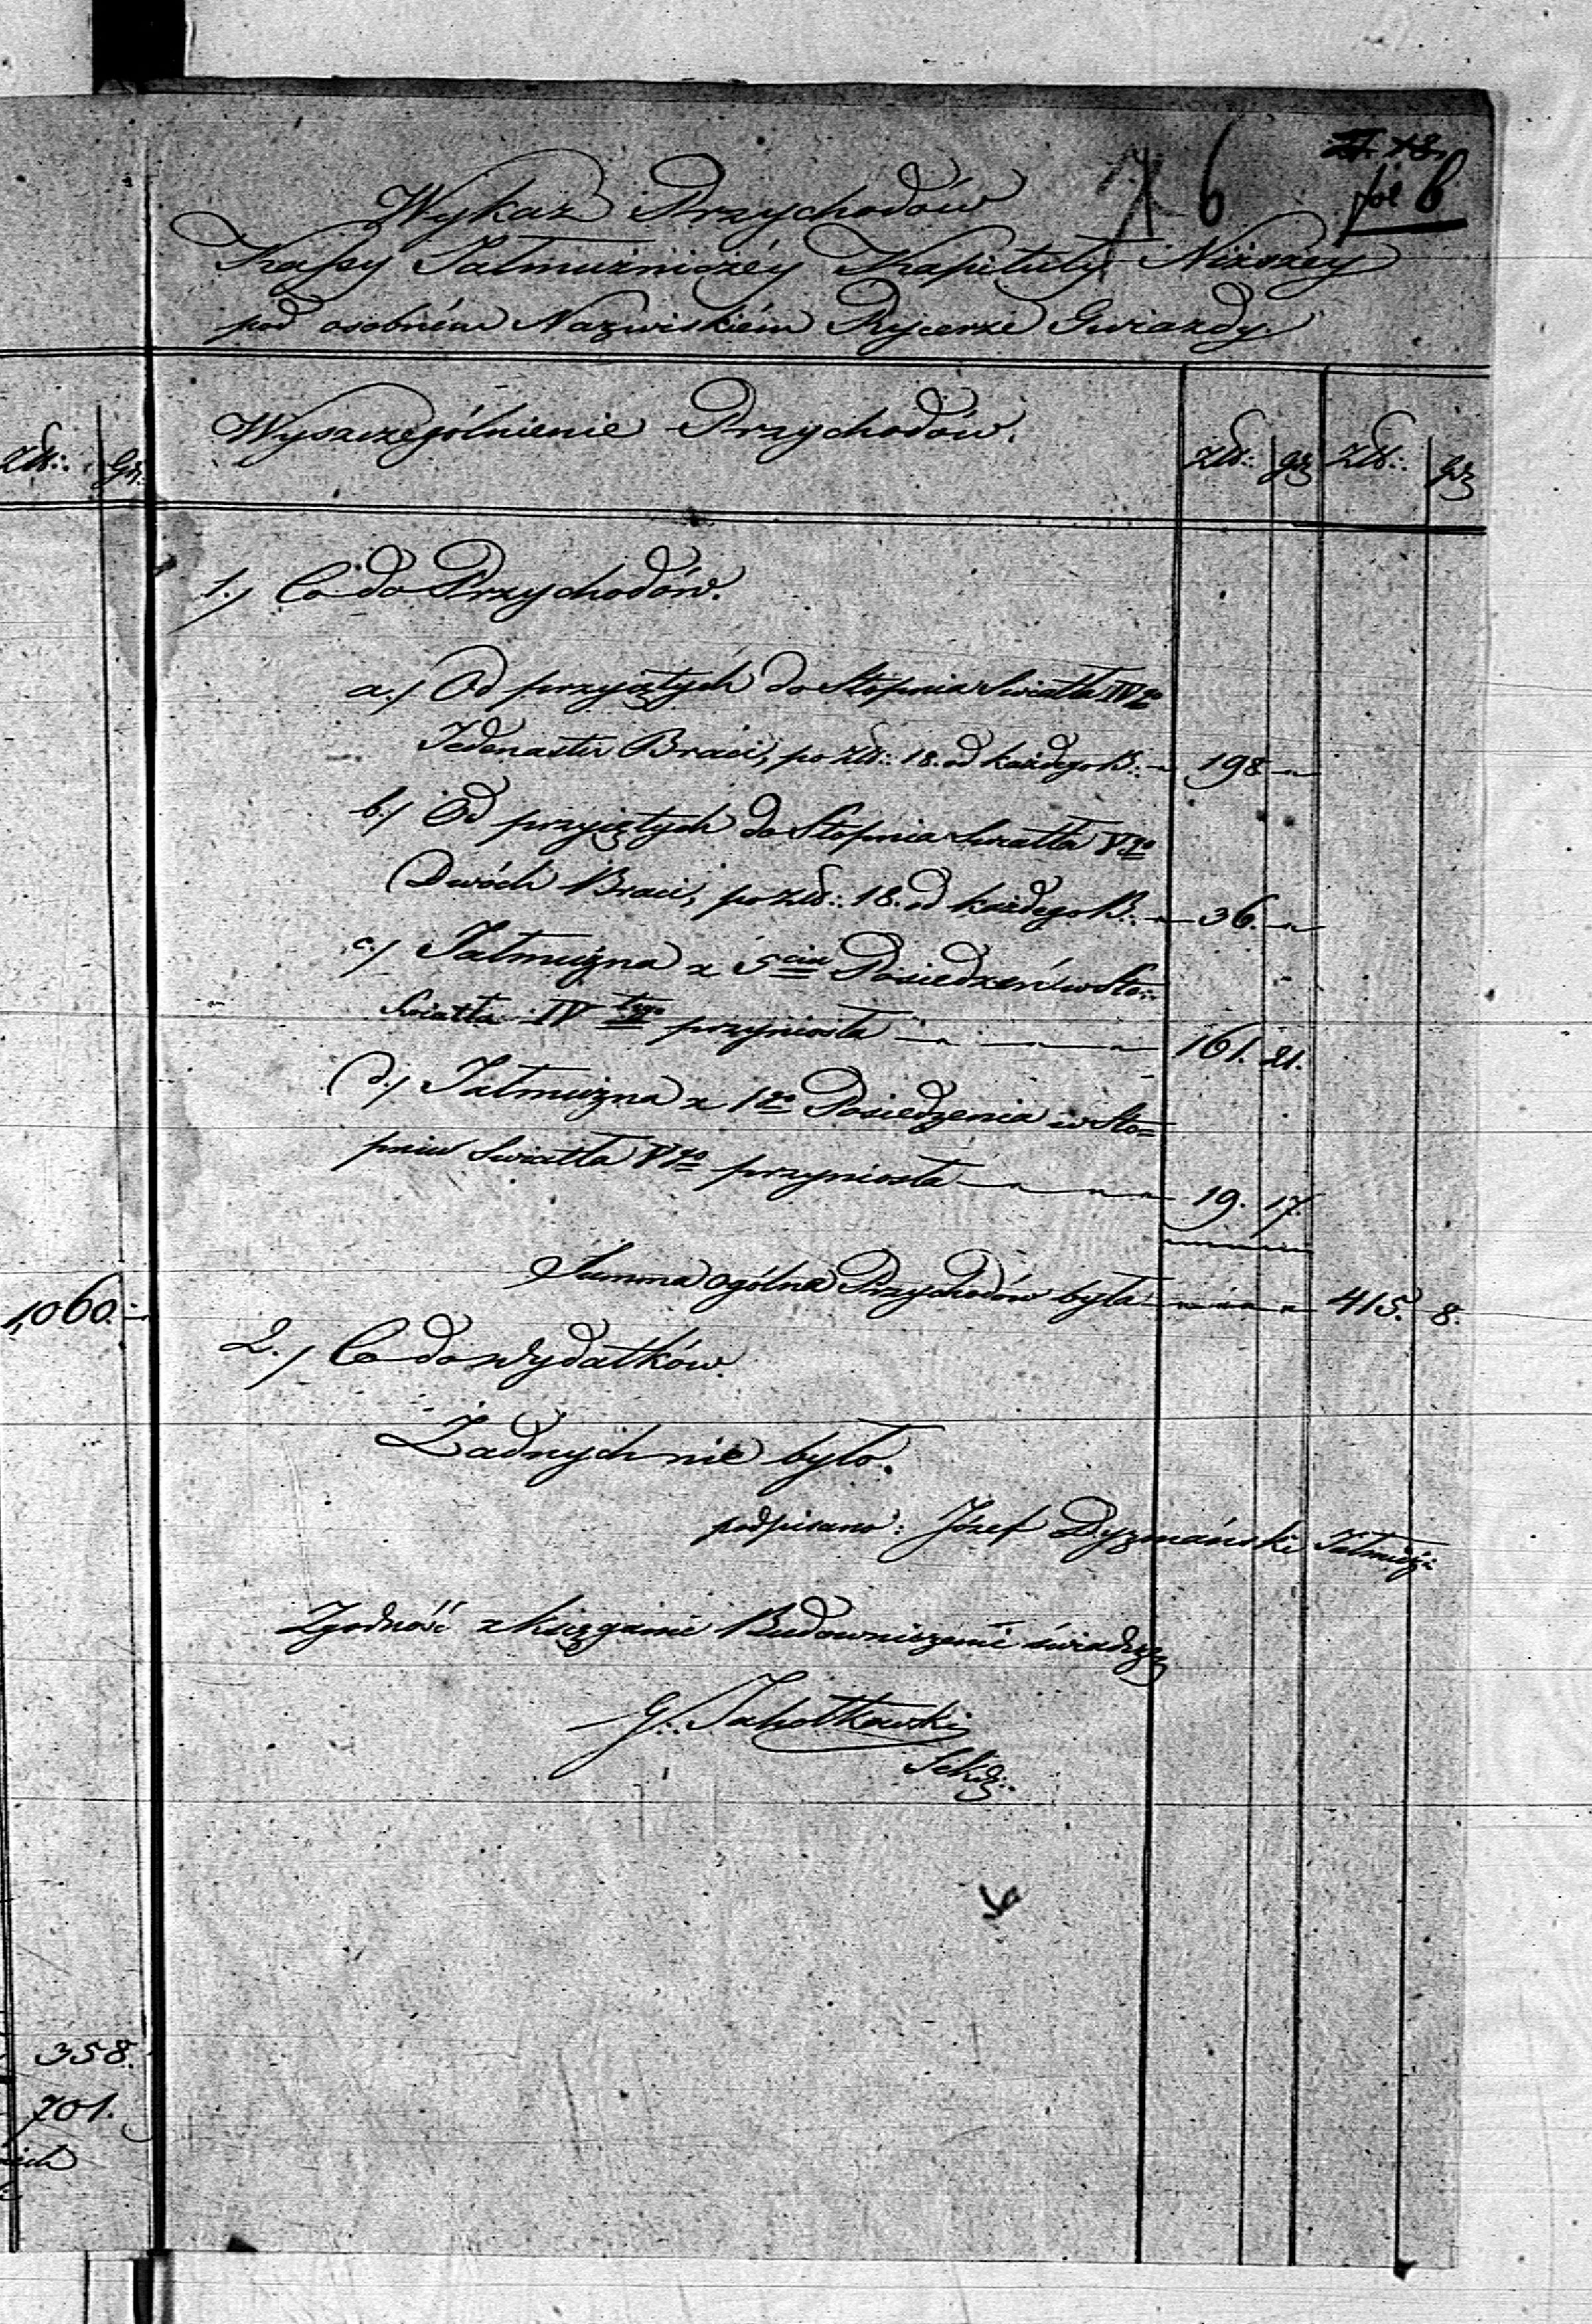 6
fol 6
Wykaz Przychodów
Kassy Jałmużniczéy Kapituły Niższey
pod osobném Nazwiskiém Rycerze Gwiazdy.
Wyszczególnienie Przychodów.
Złł: gr Złł: gr
Złł: Gr:
1.) Co do Przychodów.
a.) Od przyjętych do Stopnia Swiatła IVgo
Jedenastu Braci, po Złł: 18. od każdego B: 198
b.) Od przyiętych do Stopnia Swiatła Vgo
Dwóch Braci, po Złł: 18. od każdego B: 36.
c.) Jałmużna z 5ciu Posiedzeń w Sto:
Swiatła IVtego przyniosła 161. 21.
d.) Jałmużna z 1go Posiedzenia w Sto=
pniu Swiatła Vgo przyniosła 19. 17.
Summa ogólna Przychodów była 415. 8.
1,060.
2.) Co do Wydatków.
Żadnych nie było.
podpisano: Józef Dyzmański Jałmuż:
Zgodność z księgami Budowniczemi świadczy
G: Jabołkowski
Sekr:
358.
701.